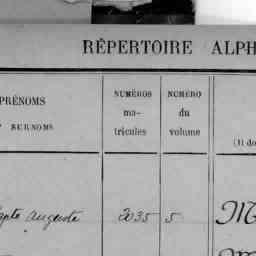 RÉPERTOIRE ALPH
PRÉNOMS
SURNOMS
NUMÉROS
ma-
tricules
NUMÉRO
du
volume
(Il do
Auguste 2035 5 M